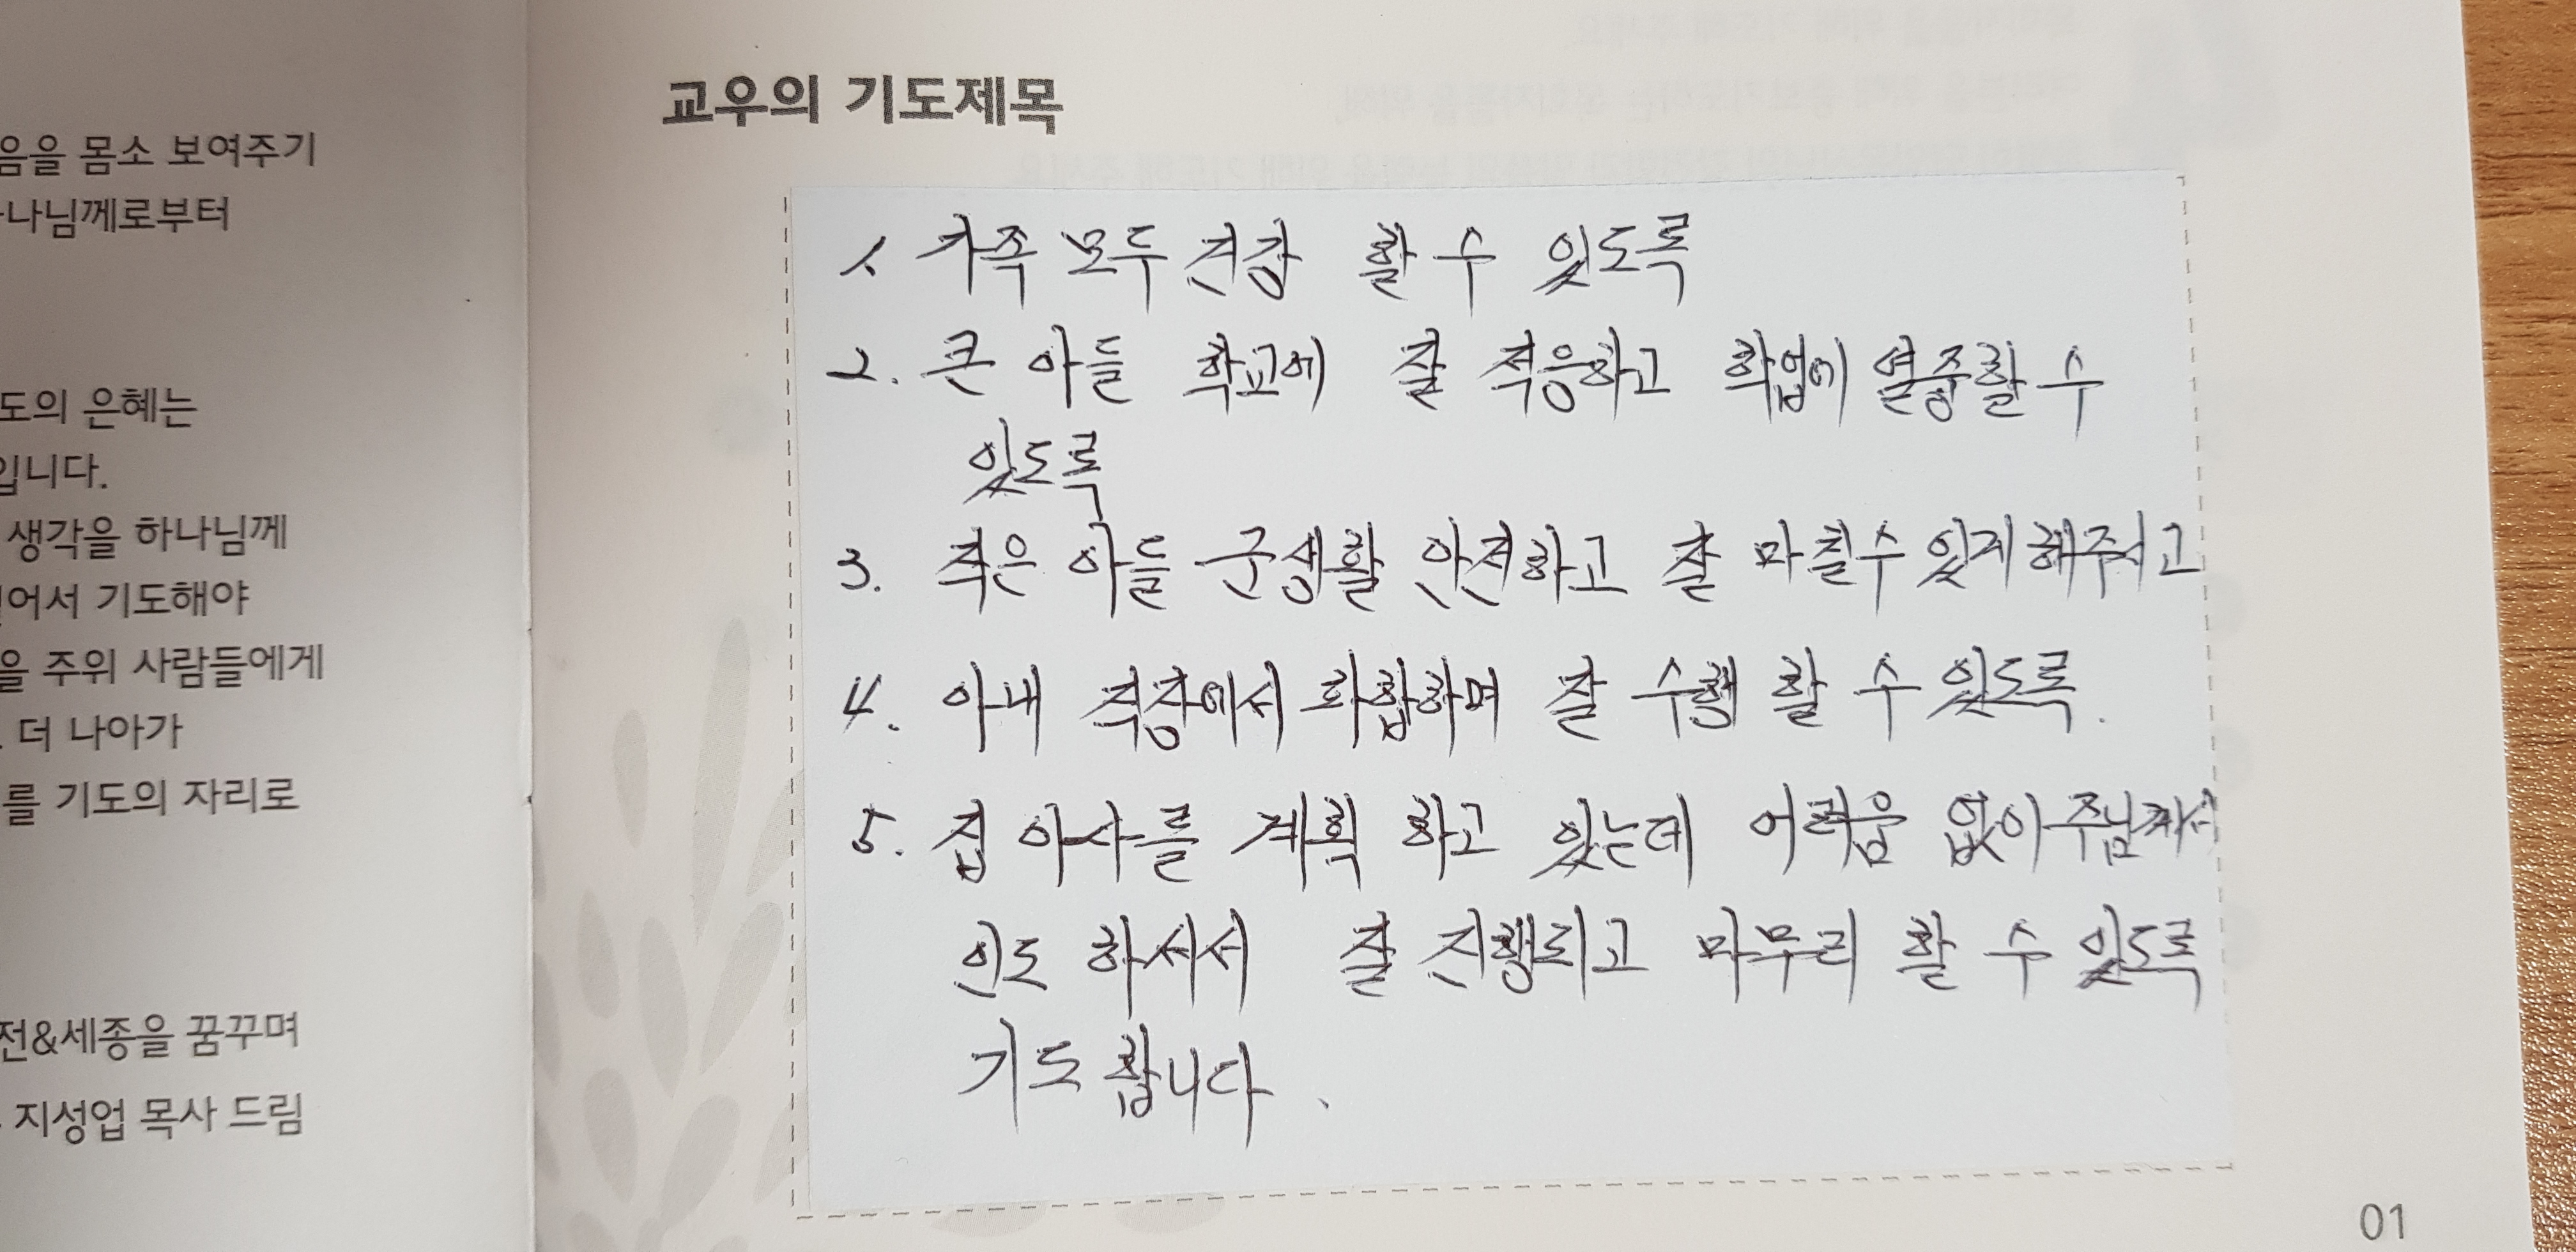 음을 몸소 보여주기
나님께로부터
도의 은혜는
입니다.
생각을 하나님께
어서 기도해야
을 주위 사람들에게
더 나아가
를 기도의 자리로
전&세종을 꿈꾸며
지성업 목사 드림
교우의 기도제목
1. 가족 모두 건강 할 수 있도록
2. 큰 아들 학교에 잘 적응하고 학업에 열중할 수
있도록
3. 작은 아들 군생활 안전하고 잘 마칠수 있게 해주시고
4. 아내 직장에서 화합하며 잘 수행 할 수 있도록.
5. 집 이사를 계획 하고 있는데 어려움 없이 주님께서
인도 하셔서 잘 진행되고 마무리 할 수 있도록
기도 합니다.
01